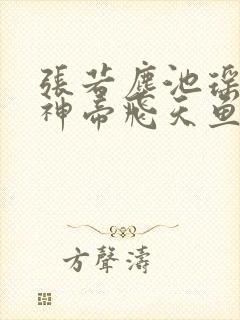 張若塵池瑤
神帝飛天魚
方聲濤